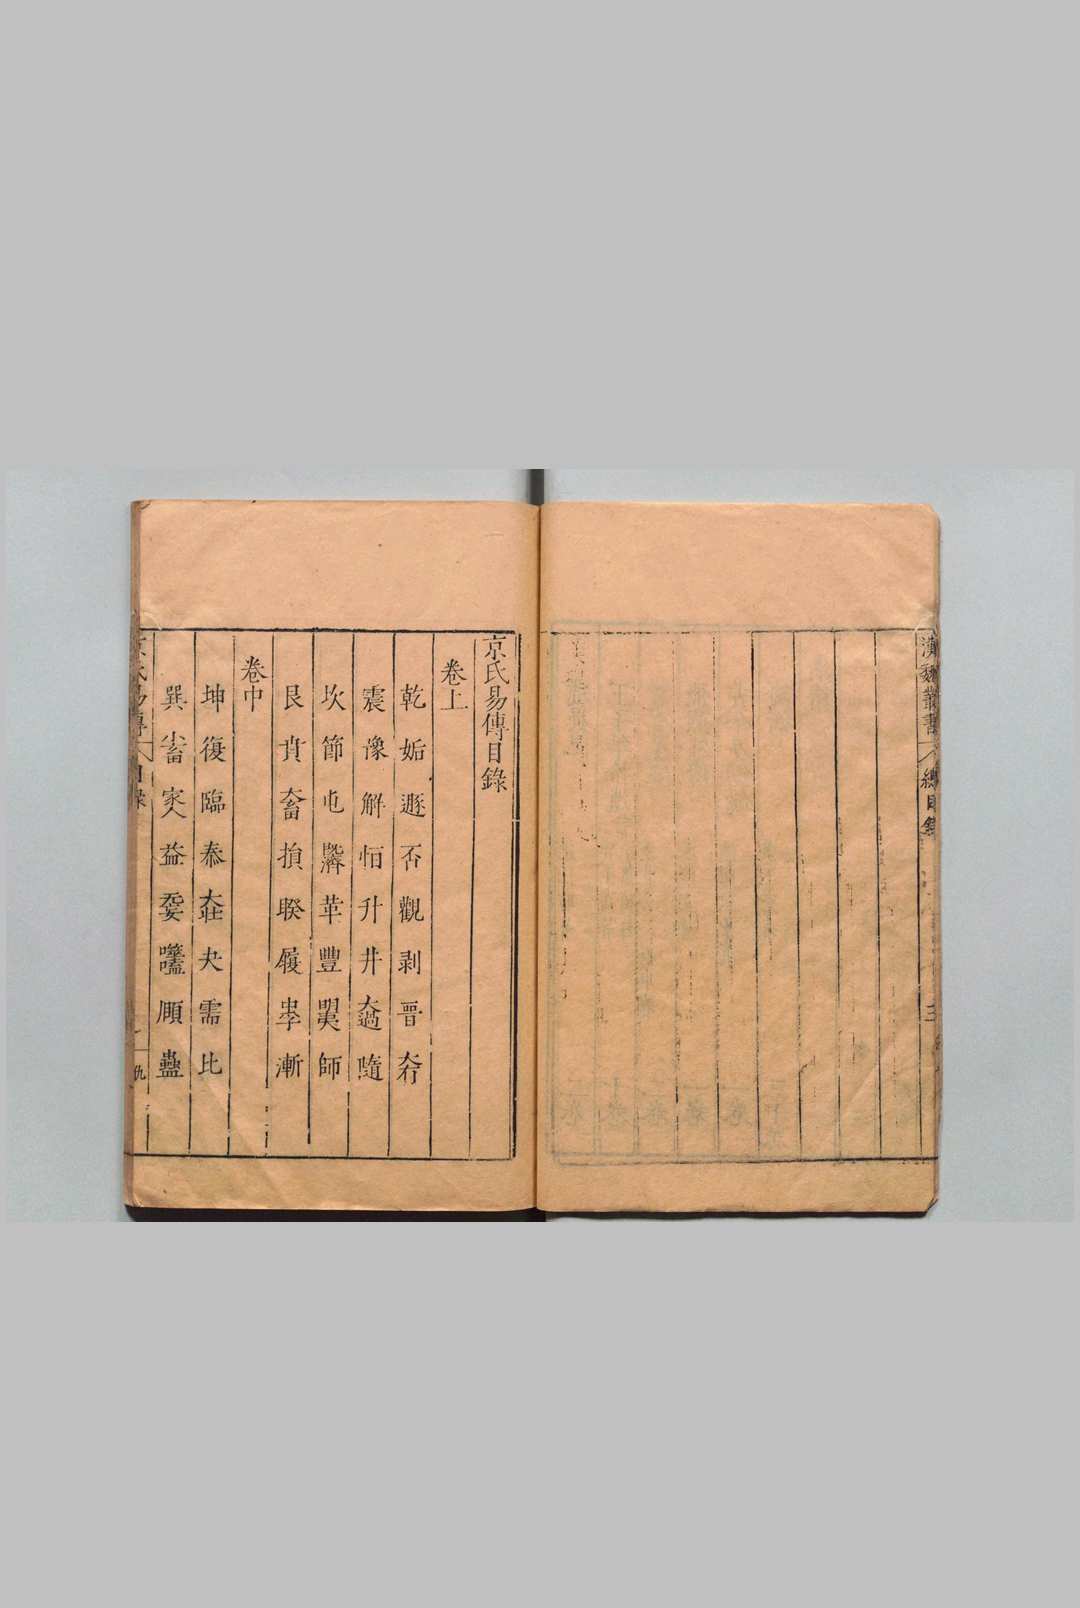 漢魏叢書 總目錄 三
京氏易傳目錄
卷上
乾 姤 遯 否 觀 剥 晉 大有
震 豫 解 恒 升 井 大過 隨
坎 節 屯 旣濟 革 豐 明夷 師
艮 賁 大畜 損 睽 履 中孚 漸
卷中
坤 復 臨 泰 大壯 夬 需 比
巽 小畜 家人 益 无妄 噬嗑 頤 蠱
京氏易傳 目錄